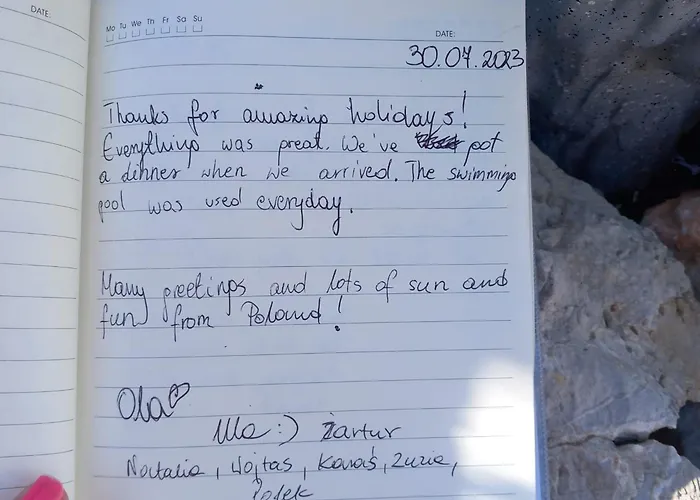 DATE:
Mo Tu We Th Fr Sa Su
DATE:
30.07.2023
Thanks for amazing holidays!
Everything was great. We've got
a dinner when we arrived. The swimming
pool was used everyday.
Many greetings and lots of sun and
fun from Poland!
Ola
Ula :) Żartur
Natalia, Wojtas, Kanaś, Zuzia,